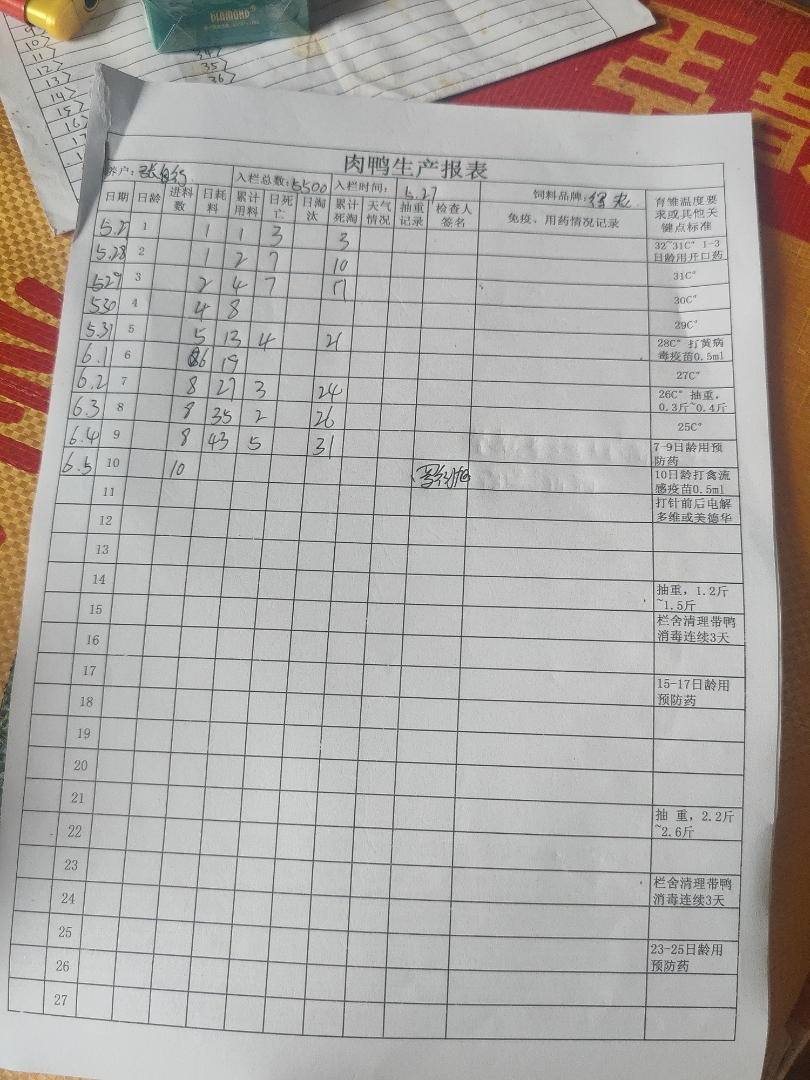 DIAMOND
10>
11>
12>
13>
14>
15>
16>
35>
36>
肉鸭生产报表
养户: 入栏总数:5500 入栏时间: 5.27 饲料品牌:
日期 日龄 进料数 日耗料 累计用料 日死亡 日淘汰 累计死淘 天气情况 抽重记录 检查人签名 免疫、用药情况记录 育雏温度要求或其他关键点标准
5.27 1 1 1 3 3 32~31C° 1-3日龄用开口药
5.28 2 1 2 7 10
5.29 3 2 4 7 17 31C°
5.30 4 4 8 30C°
5.31 5 5 13 4 21 29C°
6.1 6 6 19 28C° 打黄病毒疫苗0.5ml
6.2 7 8 27 3 24 27C°
6.3 8 8 35 2 26 26C° 抽重，0.3斤~0.4斤
6.4 9 8 43 5 31 25C°
7-9日龄用预防药
6.5 10 10 10日龄打禽流感疫苗0.5ml
11 打针前后电解多维或美德华
12
13
14
15 抽重，1.2斤~1.5斤
16 栏舍清理带鸭消毒连续3天
17
18 15-17日龄用预防药
19
20
21
22 抽 重，2.2斤~2.6斤
23
24 栏舍清理带鸭消毒连续3天
25
26 23-25日龄用预防药
27